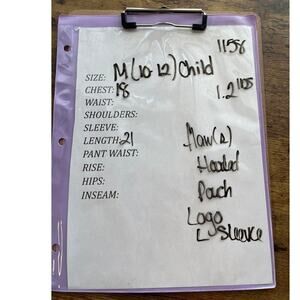 1158
SIZE: M (10-12) Child
CHEST: 18
1.2 lbs
WAIST:
SHOULDERS:
SLEEVE:
LENGTH: 21
PANT WAIST:
RISE:
HIPS:
INSEAM:
Hooded
Pouch
Logo
L Sleeve